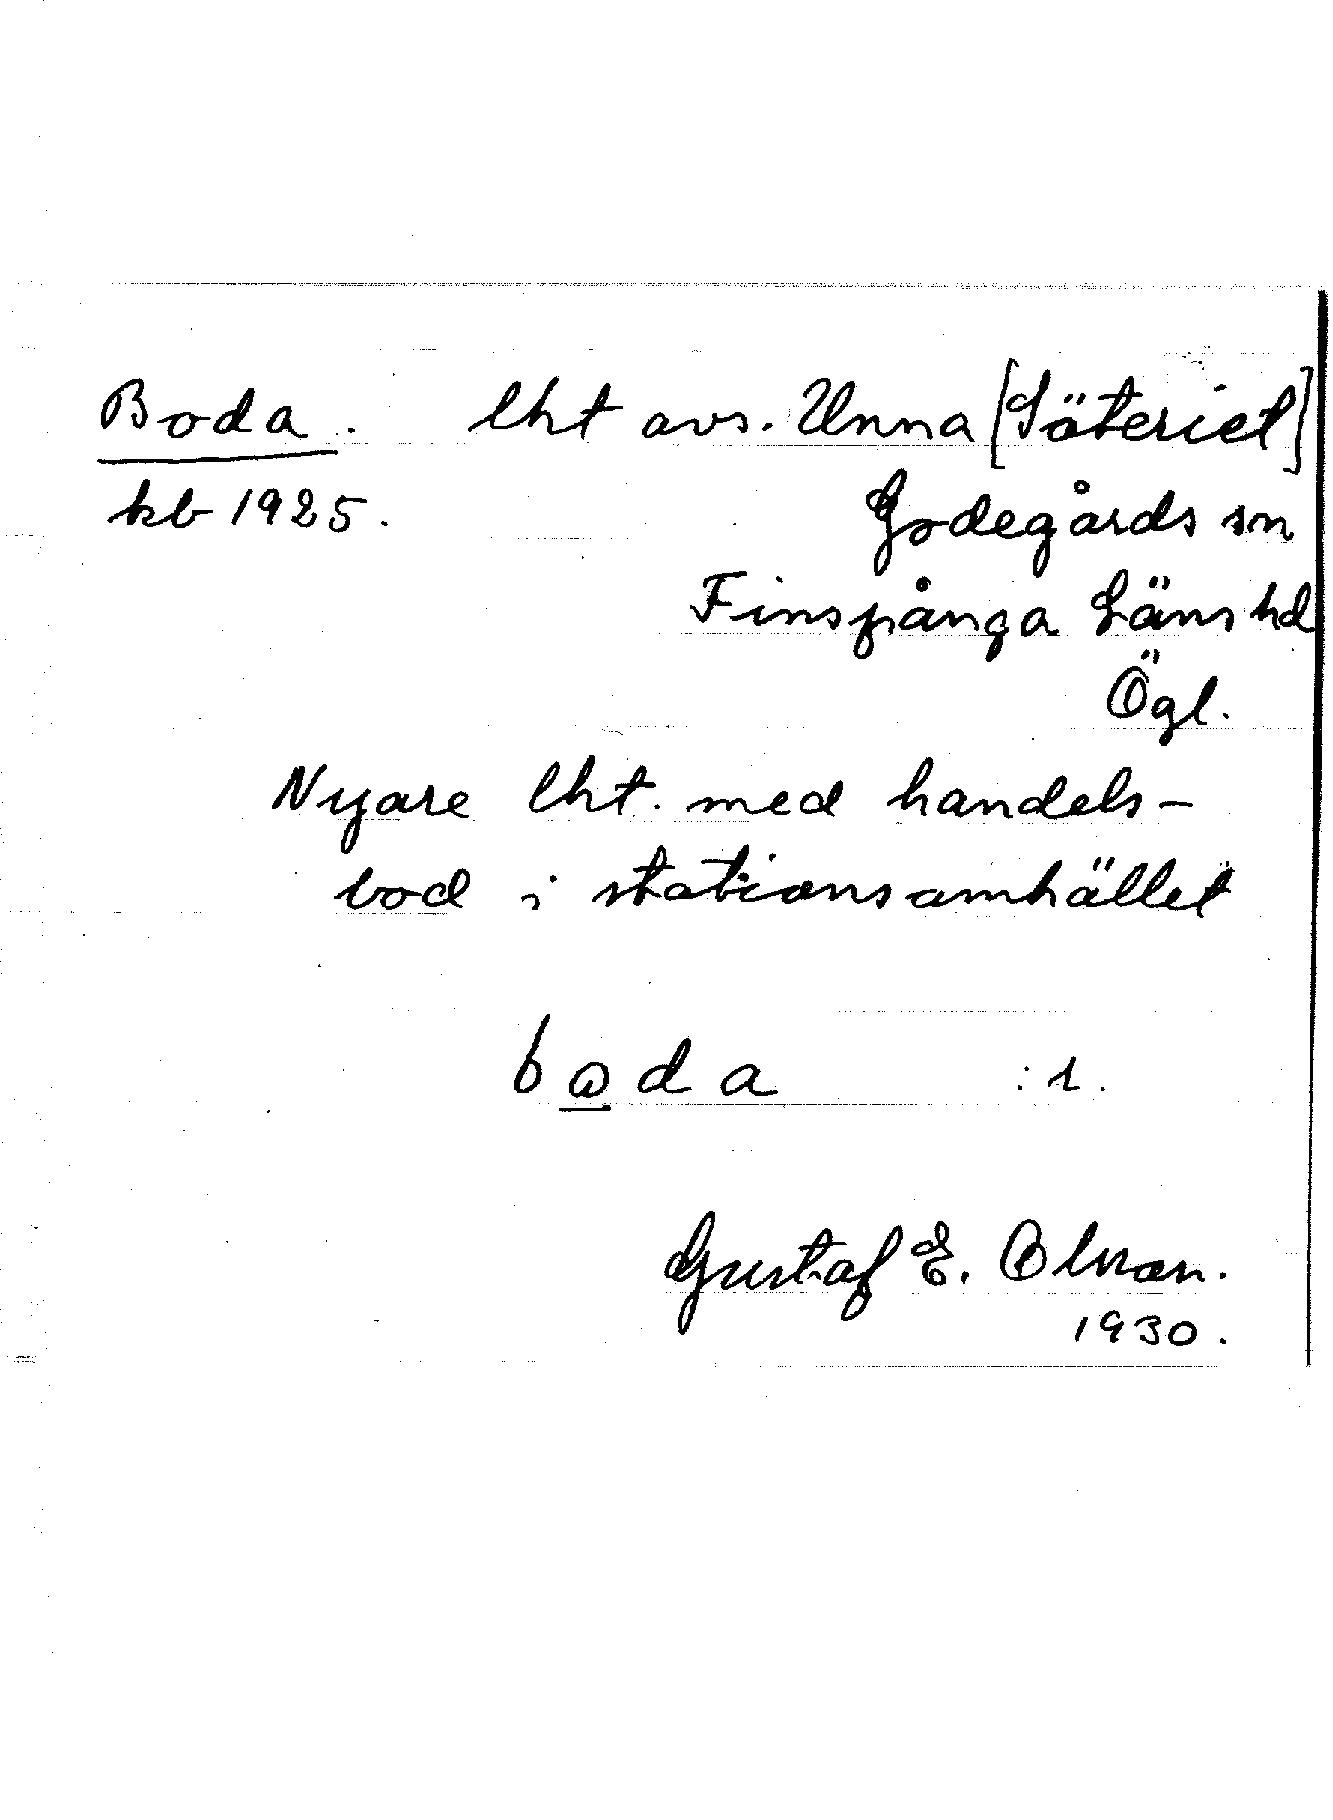 Boda. lht avs. Unna [Säteriet]
kb 1925. Godegårds sn
Finspånga Läns hd
Ögl.
Nyare lht. med handels-
bod i stationsamhället
boda : 1.
Gustaf E. Olsson.
1930.